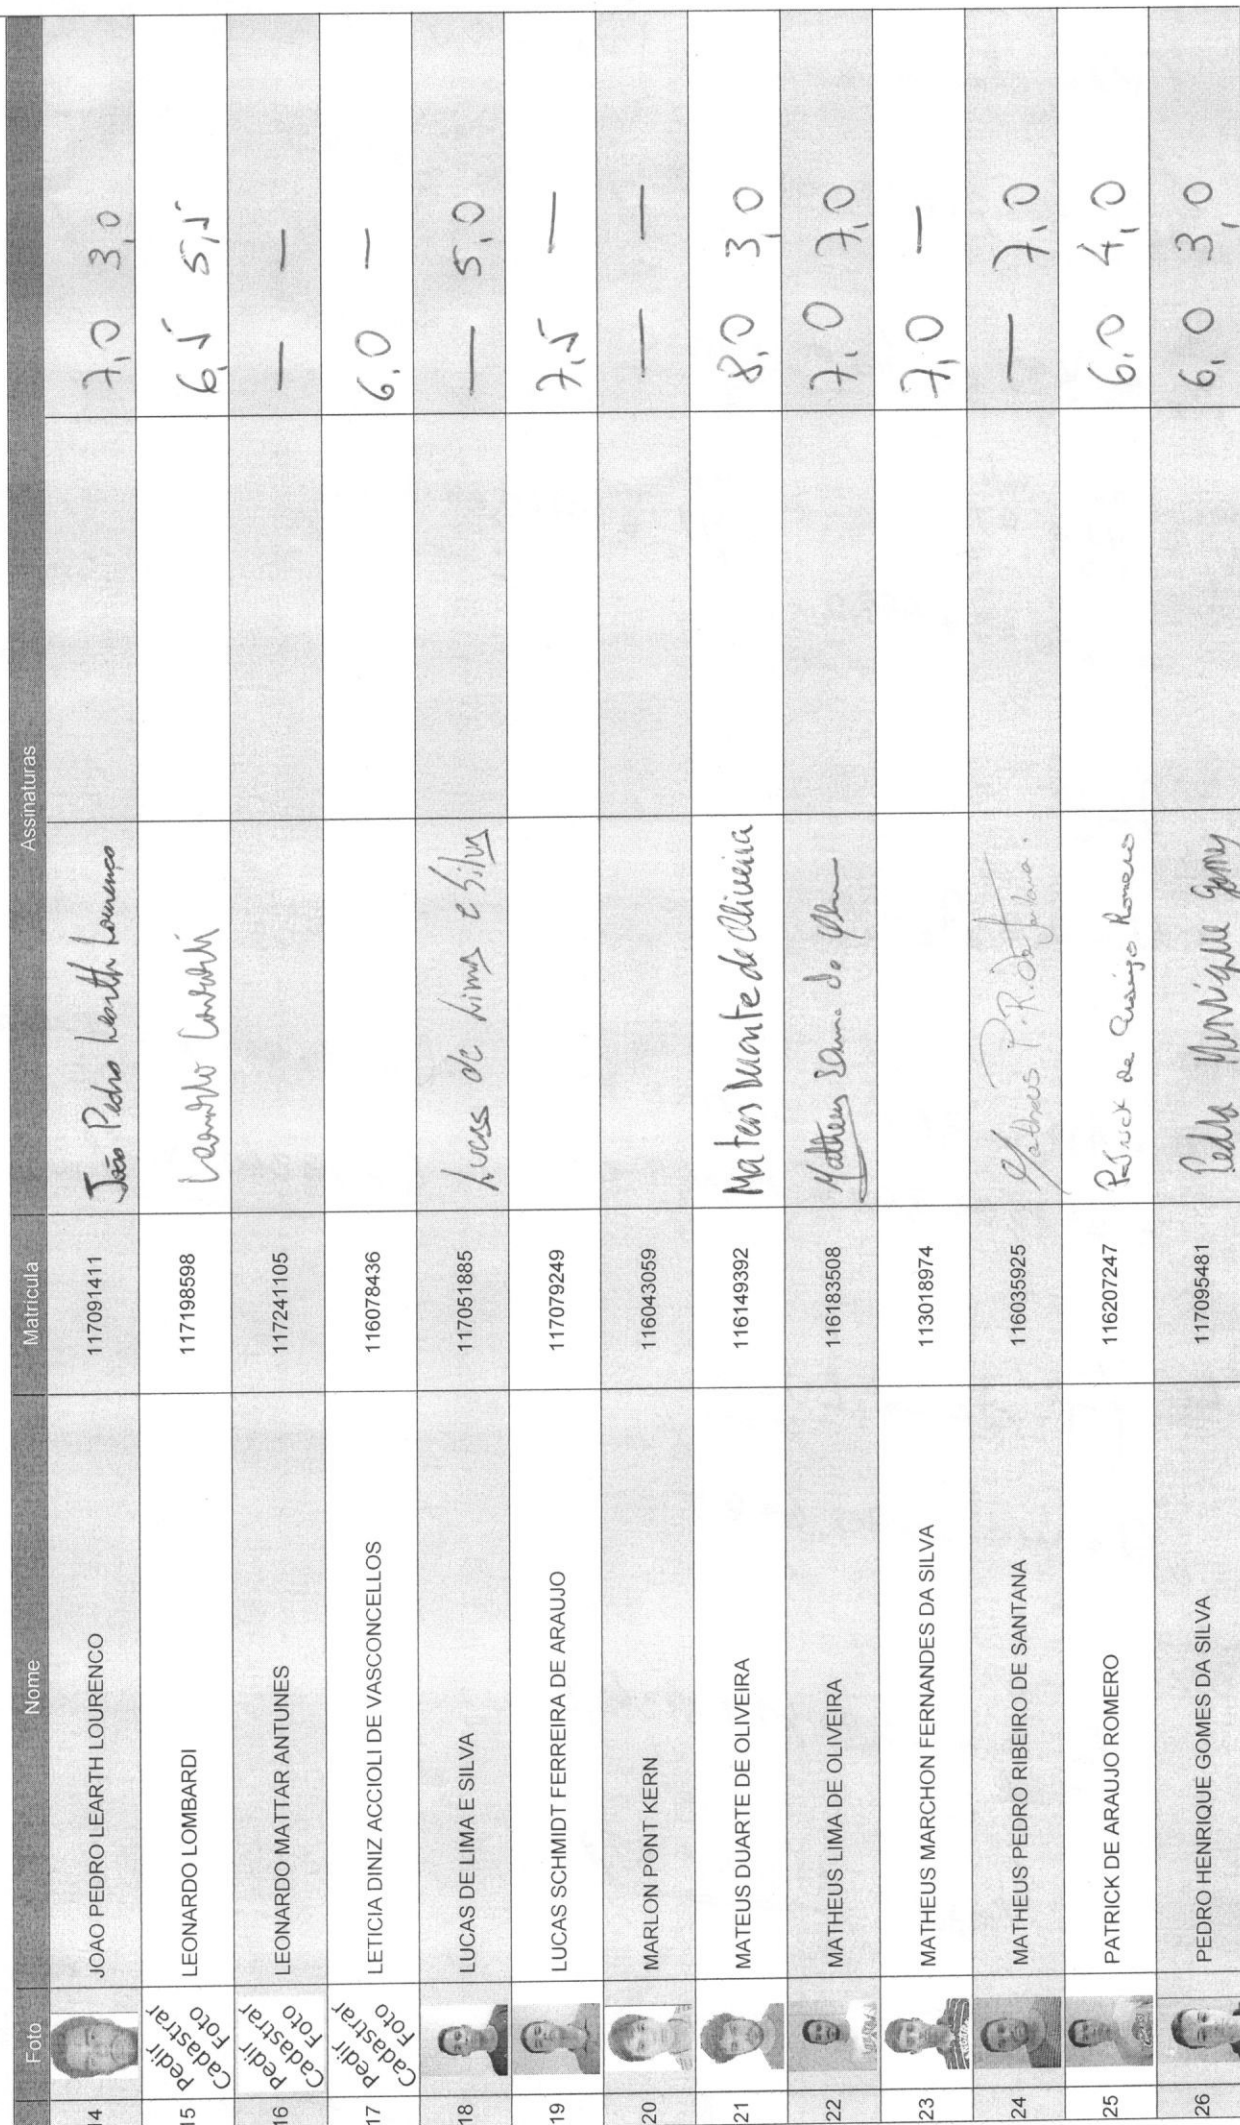 Foto Nome Matrícula Assinaturas
14 JOAO PEDRO LEARTH LOURENCO 117091411 João Pedro Learth Lourenço 7,0 3,0
15 Pedir Cadastrar Foto LEONARDO LOMBARDI 117198598 Leonardo Lombardi 6,5 5,5
16 Pedir Cadastrar Foto LEONARDO MATTAR ANTUNES 117241105 — —
17 Pedir Cadastrar Foto LETICIA DINIZ ACCIOLI DE VASCONCELLOS 116078436 6,0 —
18 LUCAS DE LIMA E SILVA 117051885 Lucas de Lima e Silva — 5,0
19 LUCAS SCHMIDT FERREIRA DE ARAUJO 117079249 7,5 —
20 MARLON PONT KERN 116043059 — —
21 MATEUS DUARTE DE OLIVEIRA 116149392 Mateus Duarte de Oliveira 8,0 3,0
22 MATHEUS LIMA DE OLIVEIRA 116183508 Matheus 7,0 7,0
23 MATHEUS MARCHON FERNANDES DA SILVA 113018974 7,0 —
24 MATHEUS PEDRO RIBEIRO DE SANTANA 116035925 Matheus P. R. de Santana. — 7,0
25 PATRICK DE ARAUJO ROMERO 116207247 Patrick de Araújo Romero 6,0 4,0
26 PEDRO HENRIQUE GOMES DA SILVA 117095481 Pedro Henrique Gomes 6,0 3,0